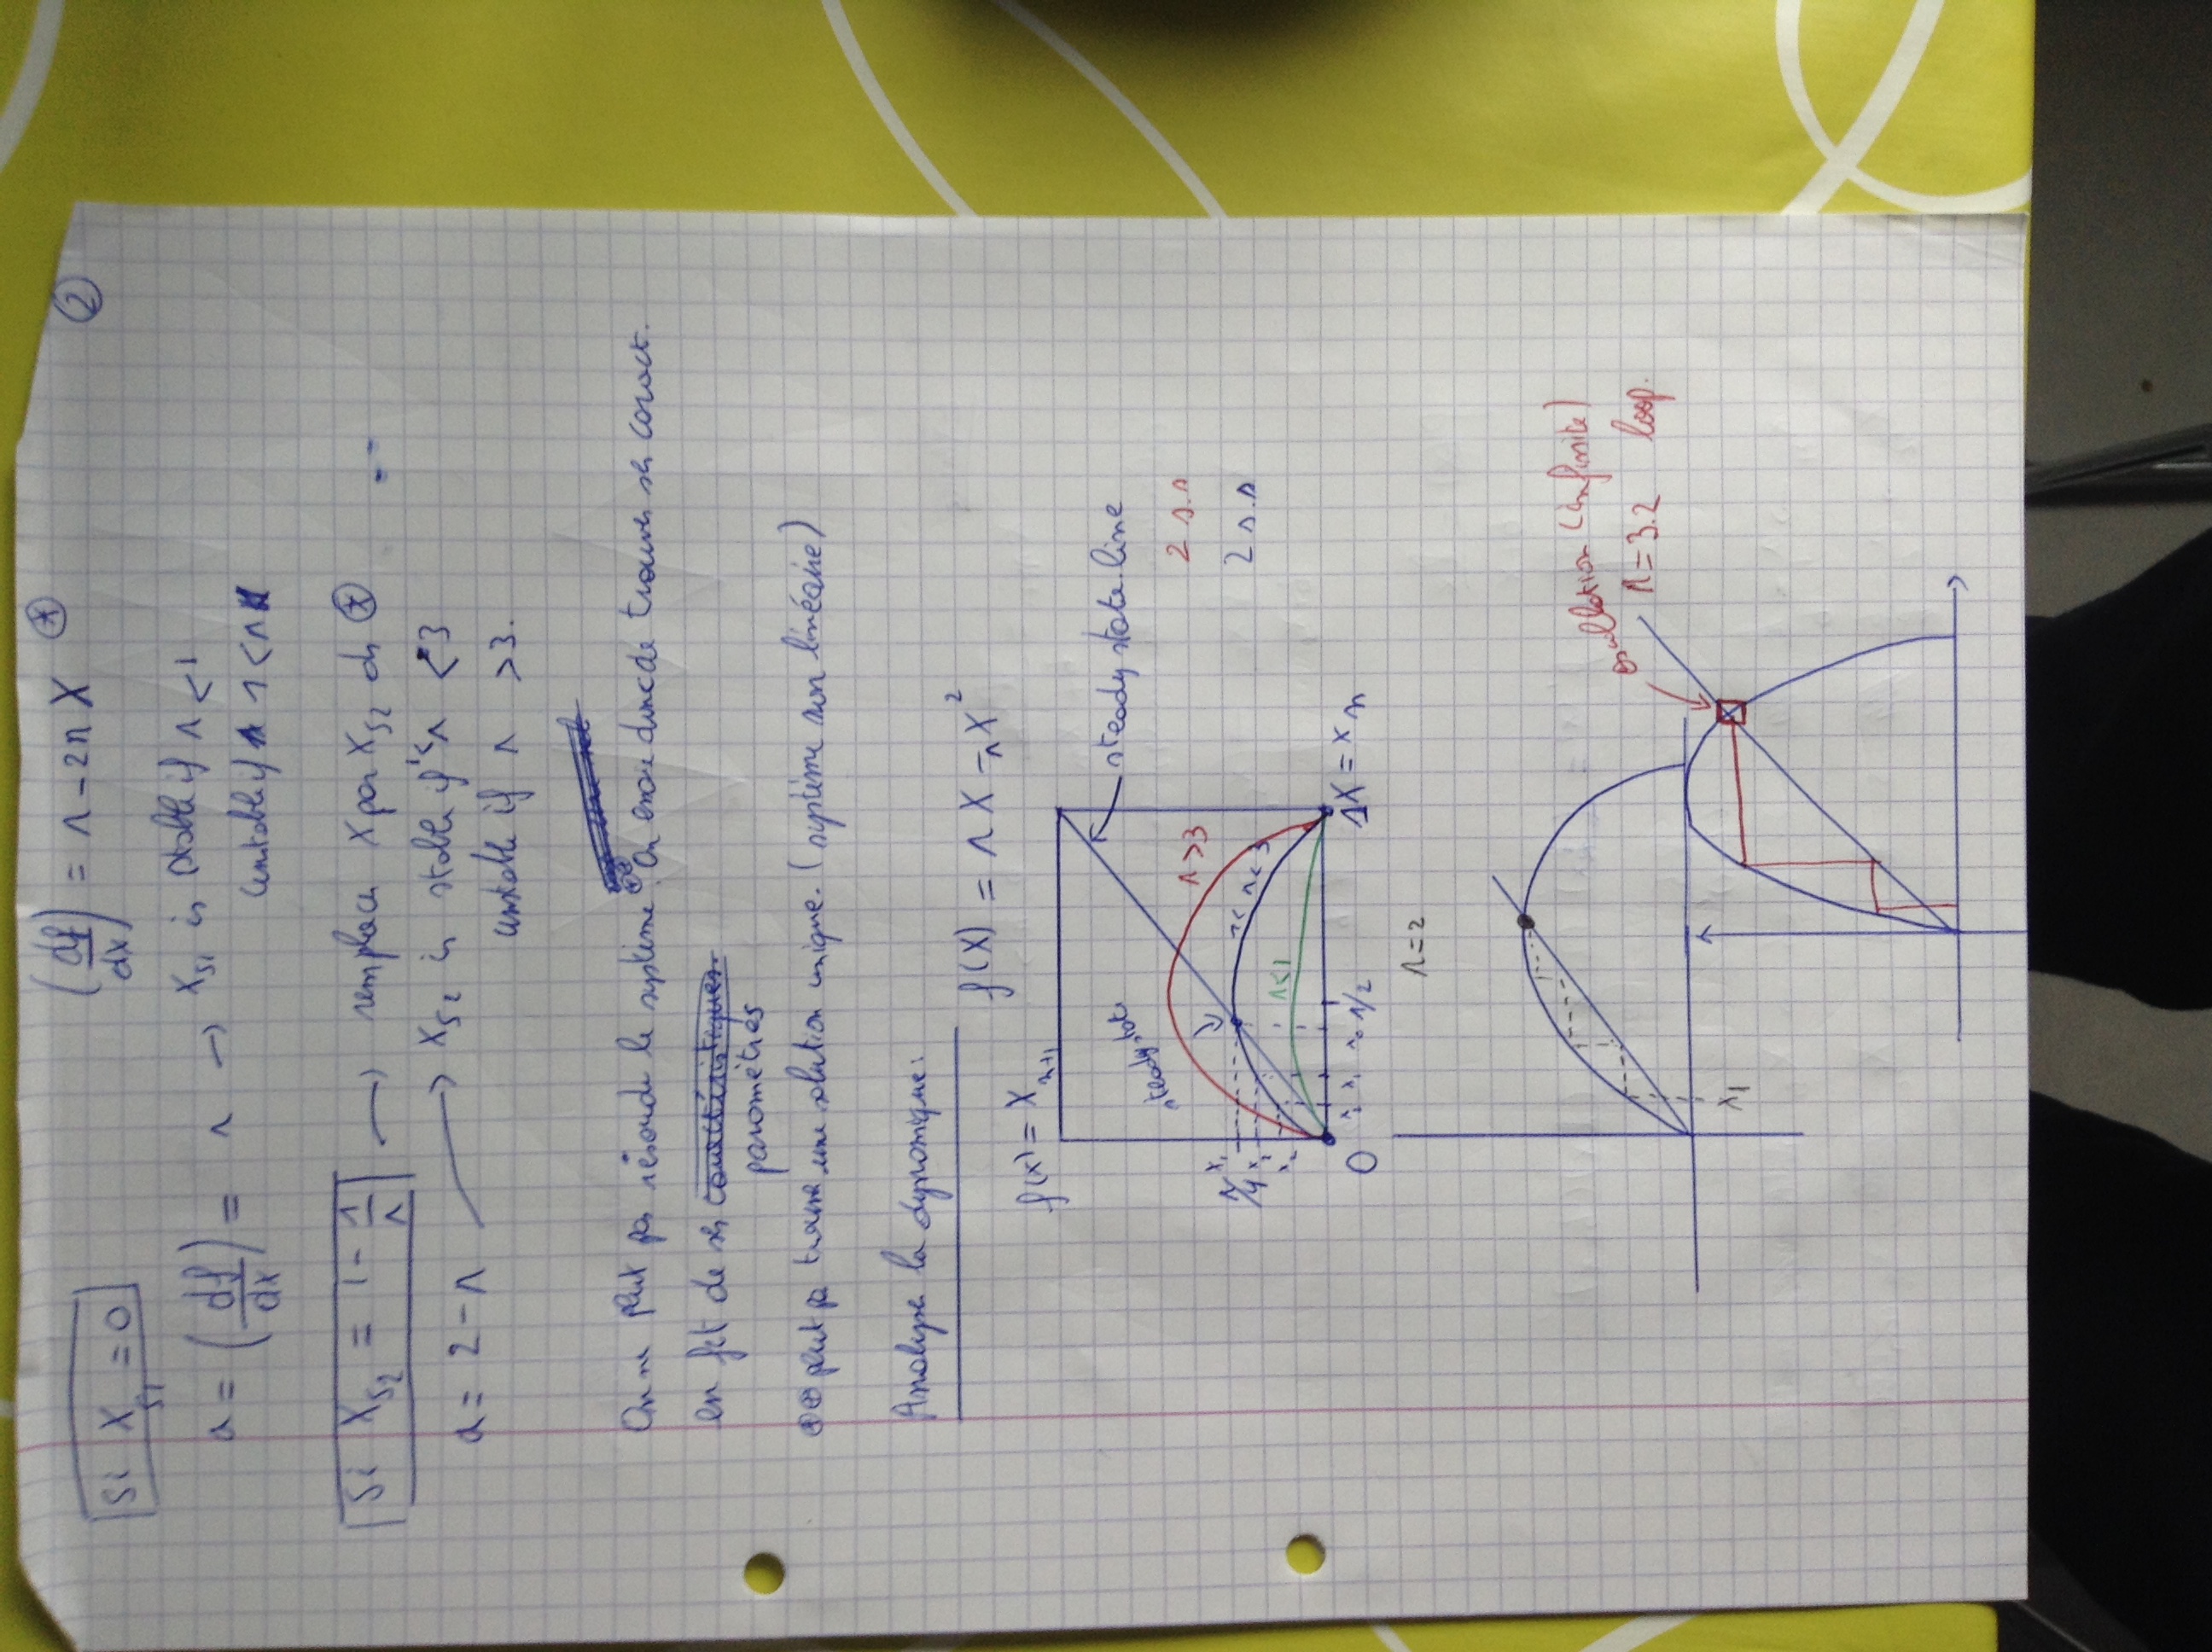 ②
(df/dx) = r - 2r X ⊛
Si X_{s1} = 0
a = (df/dx) = r → X_{s1} is stable if r < 1
unstable if 1 < r
Si X_{s2} = 1 - 1/r → remplacer X par X_{s2} ds ⊛
a = 2 - r → X_{s2} is stable if 1 < r < 3
unstable if r > 3.
On ne peut pas résoudre le système. On essaie de trouver ses caract.
en fct de ses
paramètres
peut pas trouver une solution unique. (système non linéaire)
Analyse la dynamique:
f(X) = r X - r X²
f(x) = X_{n+1}
steady state line
steady state
r > 3
2 s.s
1 < r < 3
2 s.s
r<1
r/4
x_2
x_1
0
x_2 x_1 1/2
1 X = X_n
r = 2
x_1
oscillation (infinite)
r = 3.2 loop.